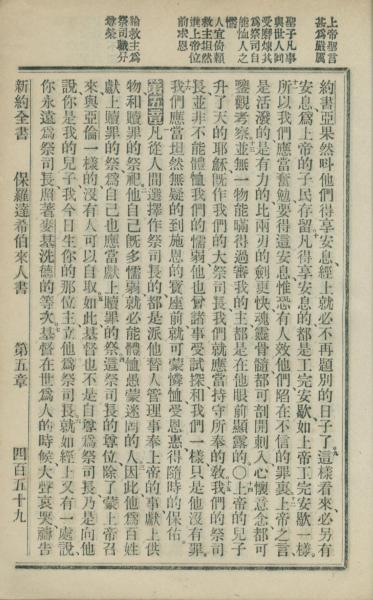 上帝聖言甚爲嚴厲
聖子凡事與世人同受磨煉其爲祭司自能恤人之懦
人宜倚賴救主坦然進上帝位前求恩
論救主爲祭司職分尊榮
約書亞果然呌他們得享安息經上就必不再題別的日子了這樣看來必另有
安息爲上帝的子民存留凡得享安息的都是工完安歇如上帝工完安歇一樣
所以我們應當奮勉要得這安息惟恐有人效他們陷在不信的罪裏上帝之言
是活潑的是有力的比兩刃的劍更快魂靈骨隨都可剖開刺入心懷意念都可
鑒觀考察並無一物能瞞得過審我的主都是在他眼前顯露的〇上帝的兒子
升了天的耶穌旣作我們的大祭司長我們就應當持守所奉的敎我們的祭司
長並非不能體恤我們的懦弱他也曾諸事受試探和我們一樣只是他沒有罪
我們應當坦然無疑的到施恩的寶座前就可蒙憐恤受恩惠得隨時的保佑
第五章凡從人間選擇作祭司長的都是派他替人管理事奉上帝的事獻上供
物和贖罪的祭祀他自己旣多懦弱就必能體恤愚蒙迷罔的人因此他爲百姓
獻上贖罪的祭爲自己也應當獻上贖罪的祭這祭司長的尊位除了蒙上帝召
來與亞倫一樣的沒有人可以自取如此基督也不是自尊爲祭司長乃是向他
說你是我的兒子我今日生你的那位主立他爲祭司長就如經上又有一處說
你永遠爲祭司長照著麥基洗德的等次基督在世爲人的時候大聲哀哭禱告
新約全書 保羅達希伯來人書 第五章 四百五十九